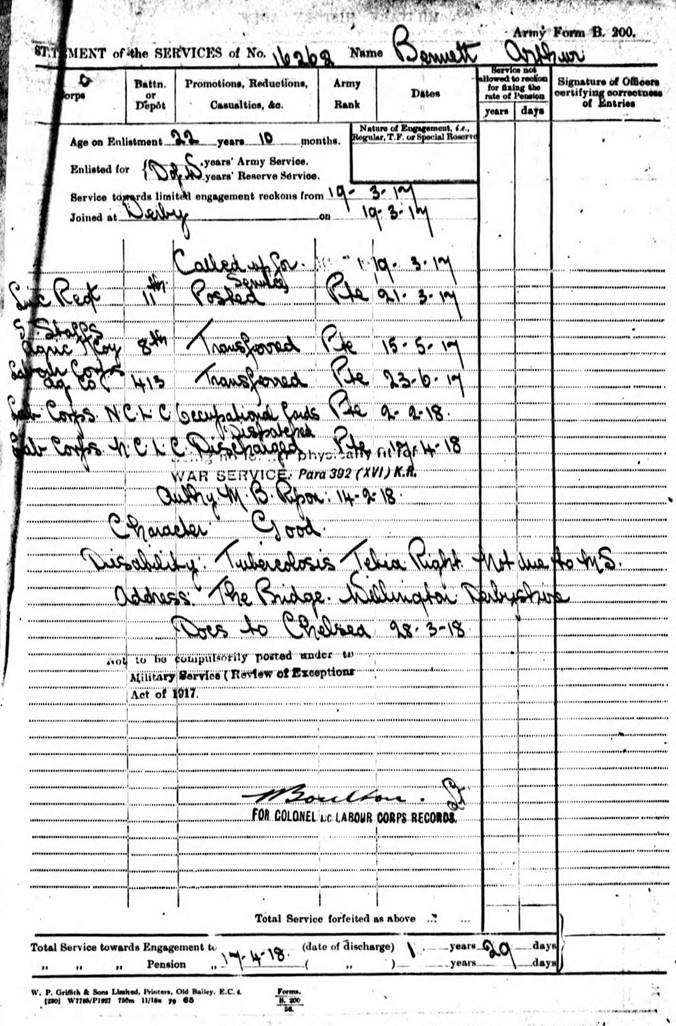 Army Form B. 200.
STATEMENT of the SERVICES of No. 16268 Name Bennett Arthur
Corps
Battn. or Depôt
Promotions, Reductions, Casualties, &c.
Army Rank
Dates
Service not allowed to reckon for fixing the rate of Pension
years days
Signature of Officers certifying correctness of Entries
Age on Enlistment 22 years 10 months.
Nature of Engagement, i.e., Regular, T.F. or Special Reserve
Enlisted for { D of W years' Army Service.
years' Reserve Service.
Service towards limited engagement reckons from 19-3-17
Joined at Derby on 19-3-17
Called up for Service 19-3-17
Linc Regt 11th Posted Pte 21-3-17
S. Staffs Agric Coy 8th Transferred Pte 15-5-17
Labour Corps Ag Co 413 Transferred Pte 23-6-17
Lab Corps. N C L C Occupational Cards Dispatched Pte 2-2-18.
Lab Corps. N C L C. Discharged Pte 17-4-18
physically fit for
WAR SERVICE. Para 392 (XVI) K.R.
Authy M. B. Ripon: 14-2-18.
Character Good.
Disability: Tuberculosis Tibia Right. Not due to M.S.
Address: The Bridge. Willington Derbyshire
Docs to Chelsea 28-3-18
Not to be compulsorily posted under to
Military Service (Review of Exceptions
Act of 1917.
Boulton. Lt
FOR COLONEL I/C LABOUR CORPS RECORDS.
Total Service forfeited as above ... ...
Total Service towards Engagement to 17-4-18. (date of discharge) 1 years 29 days
" " " Pension " ( " ) years days
W. P. Griffith & Sons Limited, Printers, Old Bailey, E.C. 4.
Forms.
B. 200